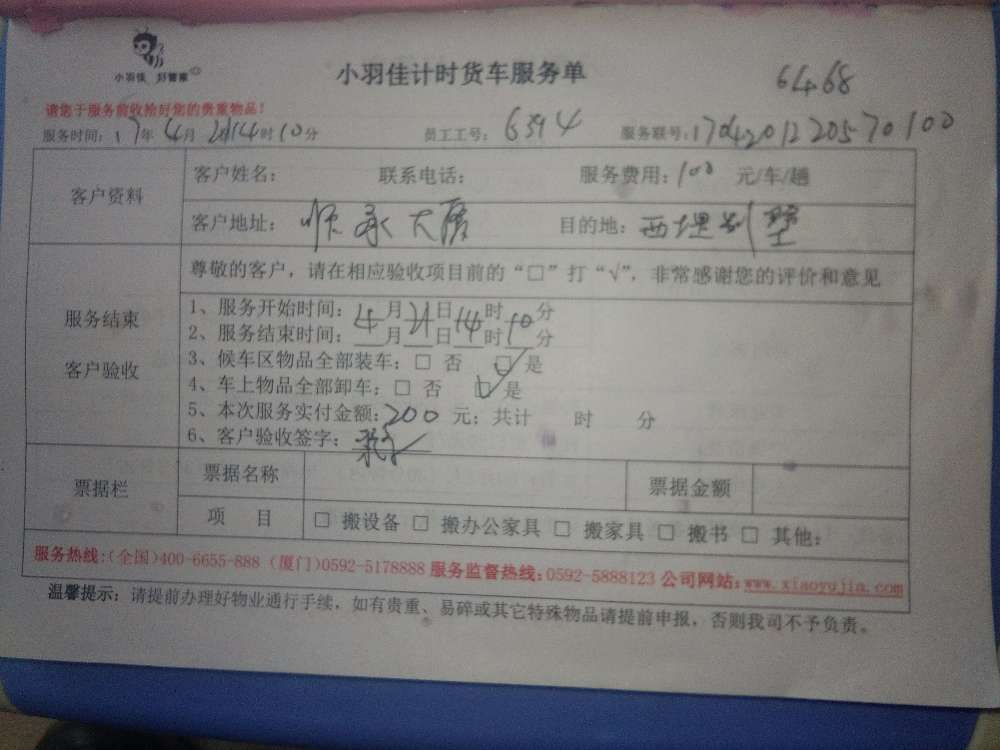 小羽佳 好管家
小羽佳计时货车服务单
6468
请您于服务前收拾好您的贵重物品!
服务时间:17年4月21日14时10分 员工工号:6394 服务联号:1704201220570100
客户资料
客户姓名: 联系电话: 服务费用:100 元/车/趟
客户地址:顺承大厦 目的地:西堤别墅
服务结束
客户验收
尊敬的客户,请在相应验收项目前的“□”打“√”,非常感谢您的评价和意见
1、服务开始时间:4月21日14时10分
2、服务结束时间: 月 日 时 分
3、候车区物品全部装车:□ 否 ☑ 是
4、车上物品全部卸车:□ 否 ☑ 是
5、本次服务实付金额:200 元;共计 时 分
6、客户验收签字:
票据栏
票据名称 票据金额
项 目 □ 搬设备 □ 搬办公家具 □ 搬家具 □ 搬书 □ 其他:
服务热线:(全国)400-6655-888 (厦门)0592-5178888 服务监督热线:0592-5888123 公司网站:www.xiaoyujia.com
温馨提示:请提前办理好物业通行手续,如有贵重、易碎或其它特殊物品请提前申报,否则我司不予负责。